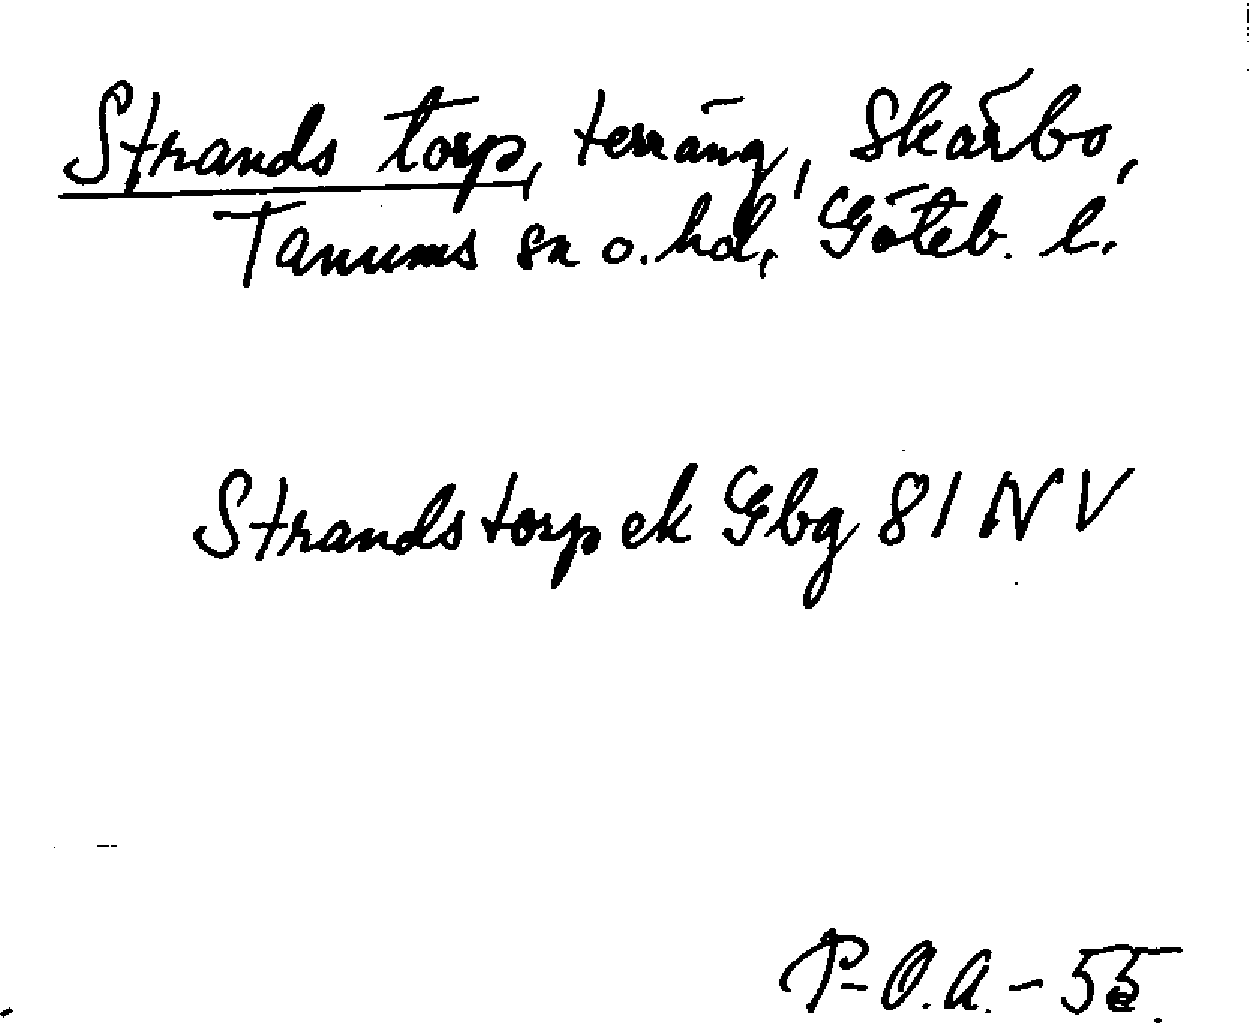 Strands torp, terräng, Skärbo,
Tanums sn o. hd, Göteb. l.
Strandstorp ek Gbg 81 NV
P-O.A.-55.